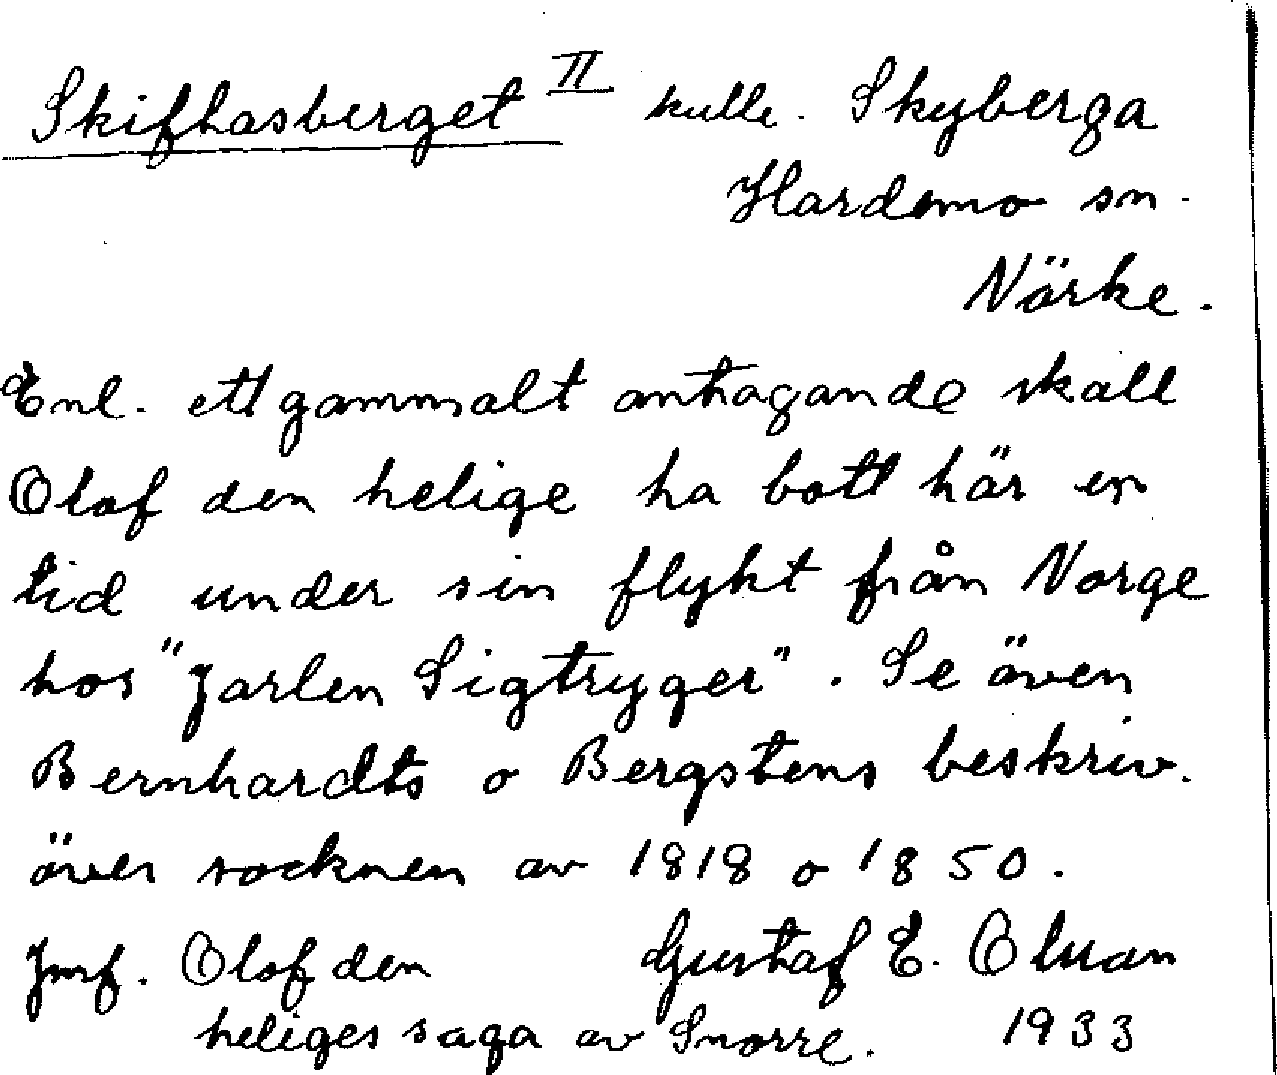 Skifhasberget II kulle. Skyberga
Hardemo sn.
Närke.
Enl. ett gammalt antagande skall
Olof den helige ha bott här en
tid under sin flykt från Norge
hos "Jarlen Sigtryger". Se även
Bernhardts o Bergstens beskriv.
över socknen av 1818 o 1850.
Jmf. Olof den Gustaf E.
heliges saga av Snorre. 1933